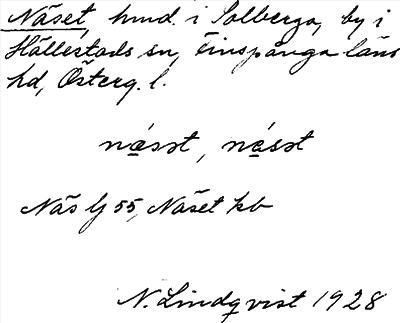 Näset, hmd. i Solberga, by i
Hällestads sn, Finspånga läns
hd, Österg. l.
næ̀sst, næ̀sst
Näs Lj 55, Näset kb
N. Lindqvist 1928